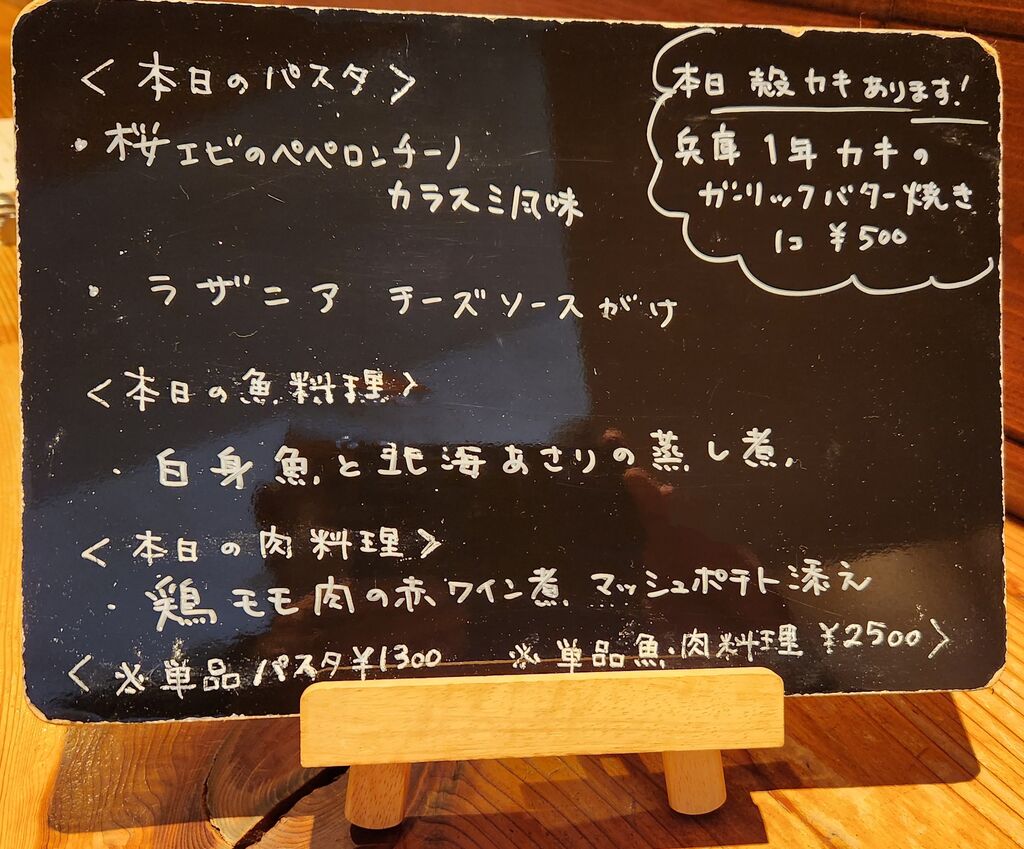 ＜本日のパスタ＞
・桜エビのペペロンチーノ
カラスミ風味
・ラザニア チーズソースがけ
＜本日の魚料理＞
・白身魚と北海あさりの蒸し煮
＜本日の肉料理＞
・鶏モモ肉の赤ワイン煮 マッシュポテト添え
＜※単品パスタ¥1300 ※単品魚・肉料理 ¥2500＞
本日 殻カキあります!
兵庫1年カキの
ガーリックバター焼き
1コ ¥500